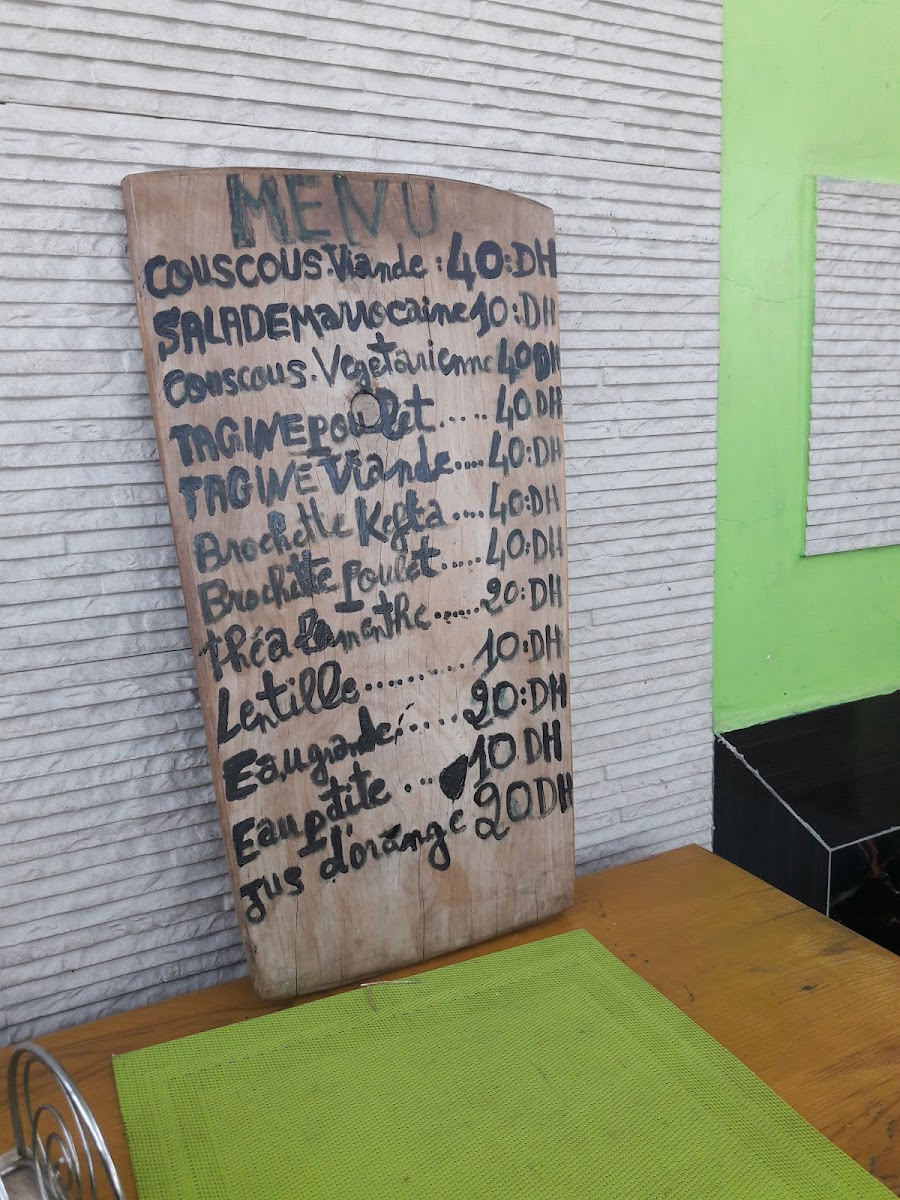 MENU
COUSCOUS.Viande : 40:DH
SALADE Marrocaine 10:DH
Couscous.Vegetarienne 40DH
TAGINE poulet ..... 40DH
TAGINE Viande .... 40:DH
Brochette Kefta .... 40:DH
Brochette poulet ..... 40:DH
théa la menthe ...... 20:DH
Lentille ......... 10:DH
Eau grande ...... 20:DH
Eau patite ... 10DH
jus d'orange 20DH